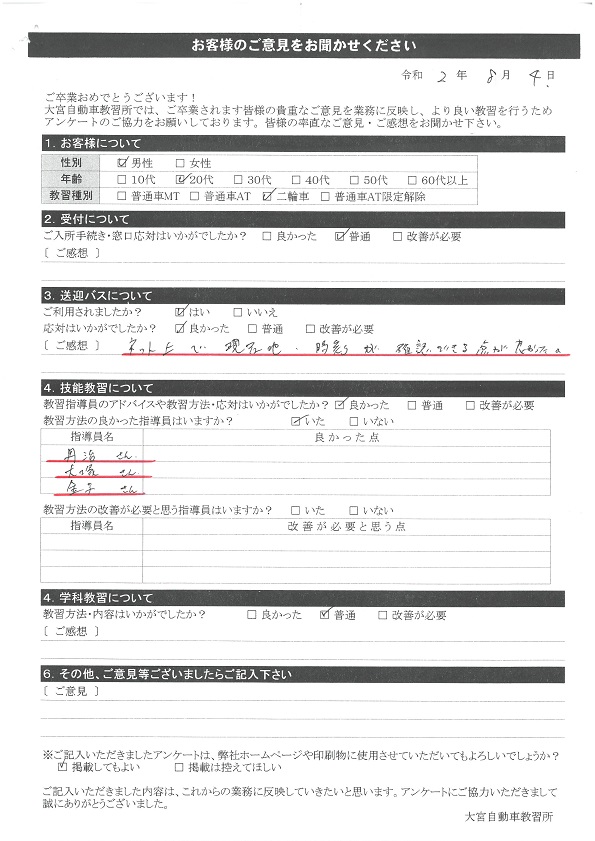 お客様のご意見をお聞かせください
令和 2 年 8 月 4 日
ご卒業おめでとうございます！
大宮自動車教習所では、ご卒業されます皆様の貴重なご意見を業務に反映し、より良い教習を行うため
アンケートのご協力をお願いしております。皆様の率直なご意見・ご感想をお聞かせ下さい。
1. お客様について
性別 ☑男性 □女性
年齢 □10代 ☑20代 □30代 □40代 □50代 □60代以上
教習種別 □普通車MT □普通車AT ☑二輪車 □普通車AT限定解除
2. 受付について
ご入所手続き・窓口応対はいかがでしたか？ □良かった ☑普通 □改善が必要
〔 ご感想 〕
3. 送迎バスについて
ご利用されましたか？ ☑はい □いいえ
応対はいかがでしたか？ ☑良かった □普通 □改善が必要
〔 ご感想 〕 ネット上で 現在地・時刻が 確認できる点が良かった。
4. 技能教習について
教習指導員のアドバイスや教習方法・応対はいかがでしたか？ ☑良かった □普通 □改善が必要
教習方法の良かった指導員はいますか？ ☑いた □いない
指導員名 良かった点
丹治 さん
大塚 さん
金子 さん
教習方法の改善が必要と思う指導員はいますか？ □いた □いない
指導員名 改善が必要と思う点
4. 学科教習について
教習方法・内容はいかがでしたか？ □良かった ☑普通 □改善が必要
〔 ご感想 〕
6. その他、ご意見等ございましたらご記入下さい
〔 ご意見 〕
※ご記入いただきましたアンケートは、弊社ホームページや印刷物に使用させていただいてもよろしいでしょうか？
☑掲載してもよい □掲載は控えてほしい
ご記入いただきました内容は、これからの業務に反映していきたいと思います。アンケートにご協力いただきまして
誠にありがとうございました。
大宮自動車教習所